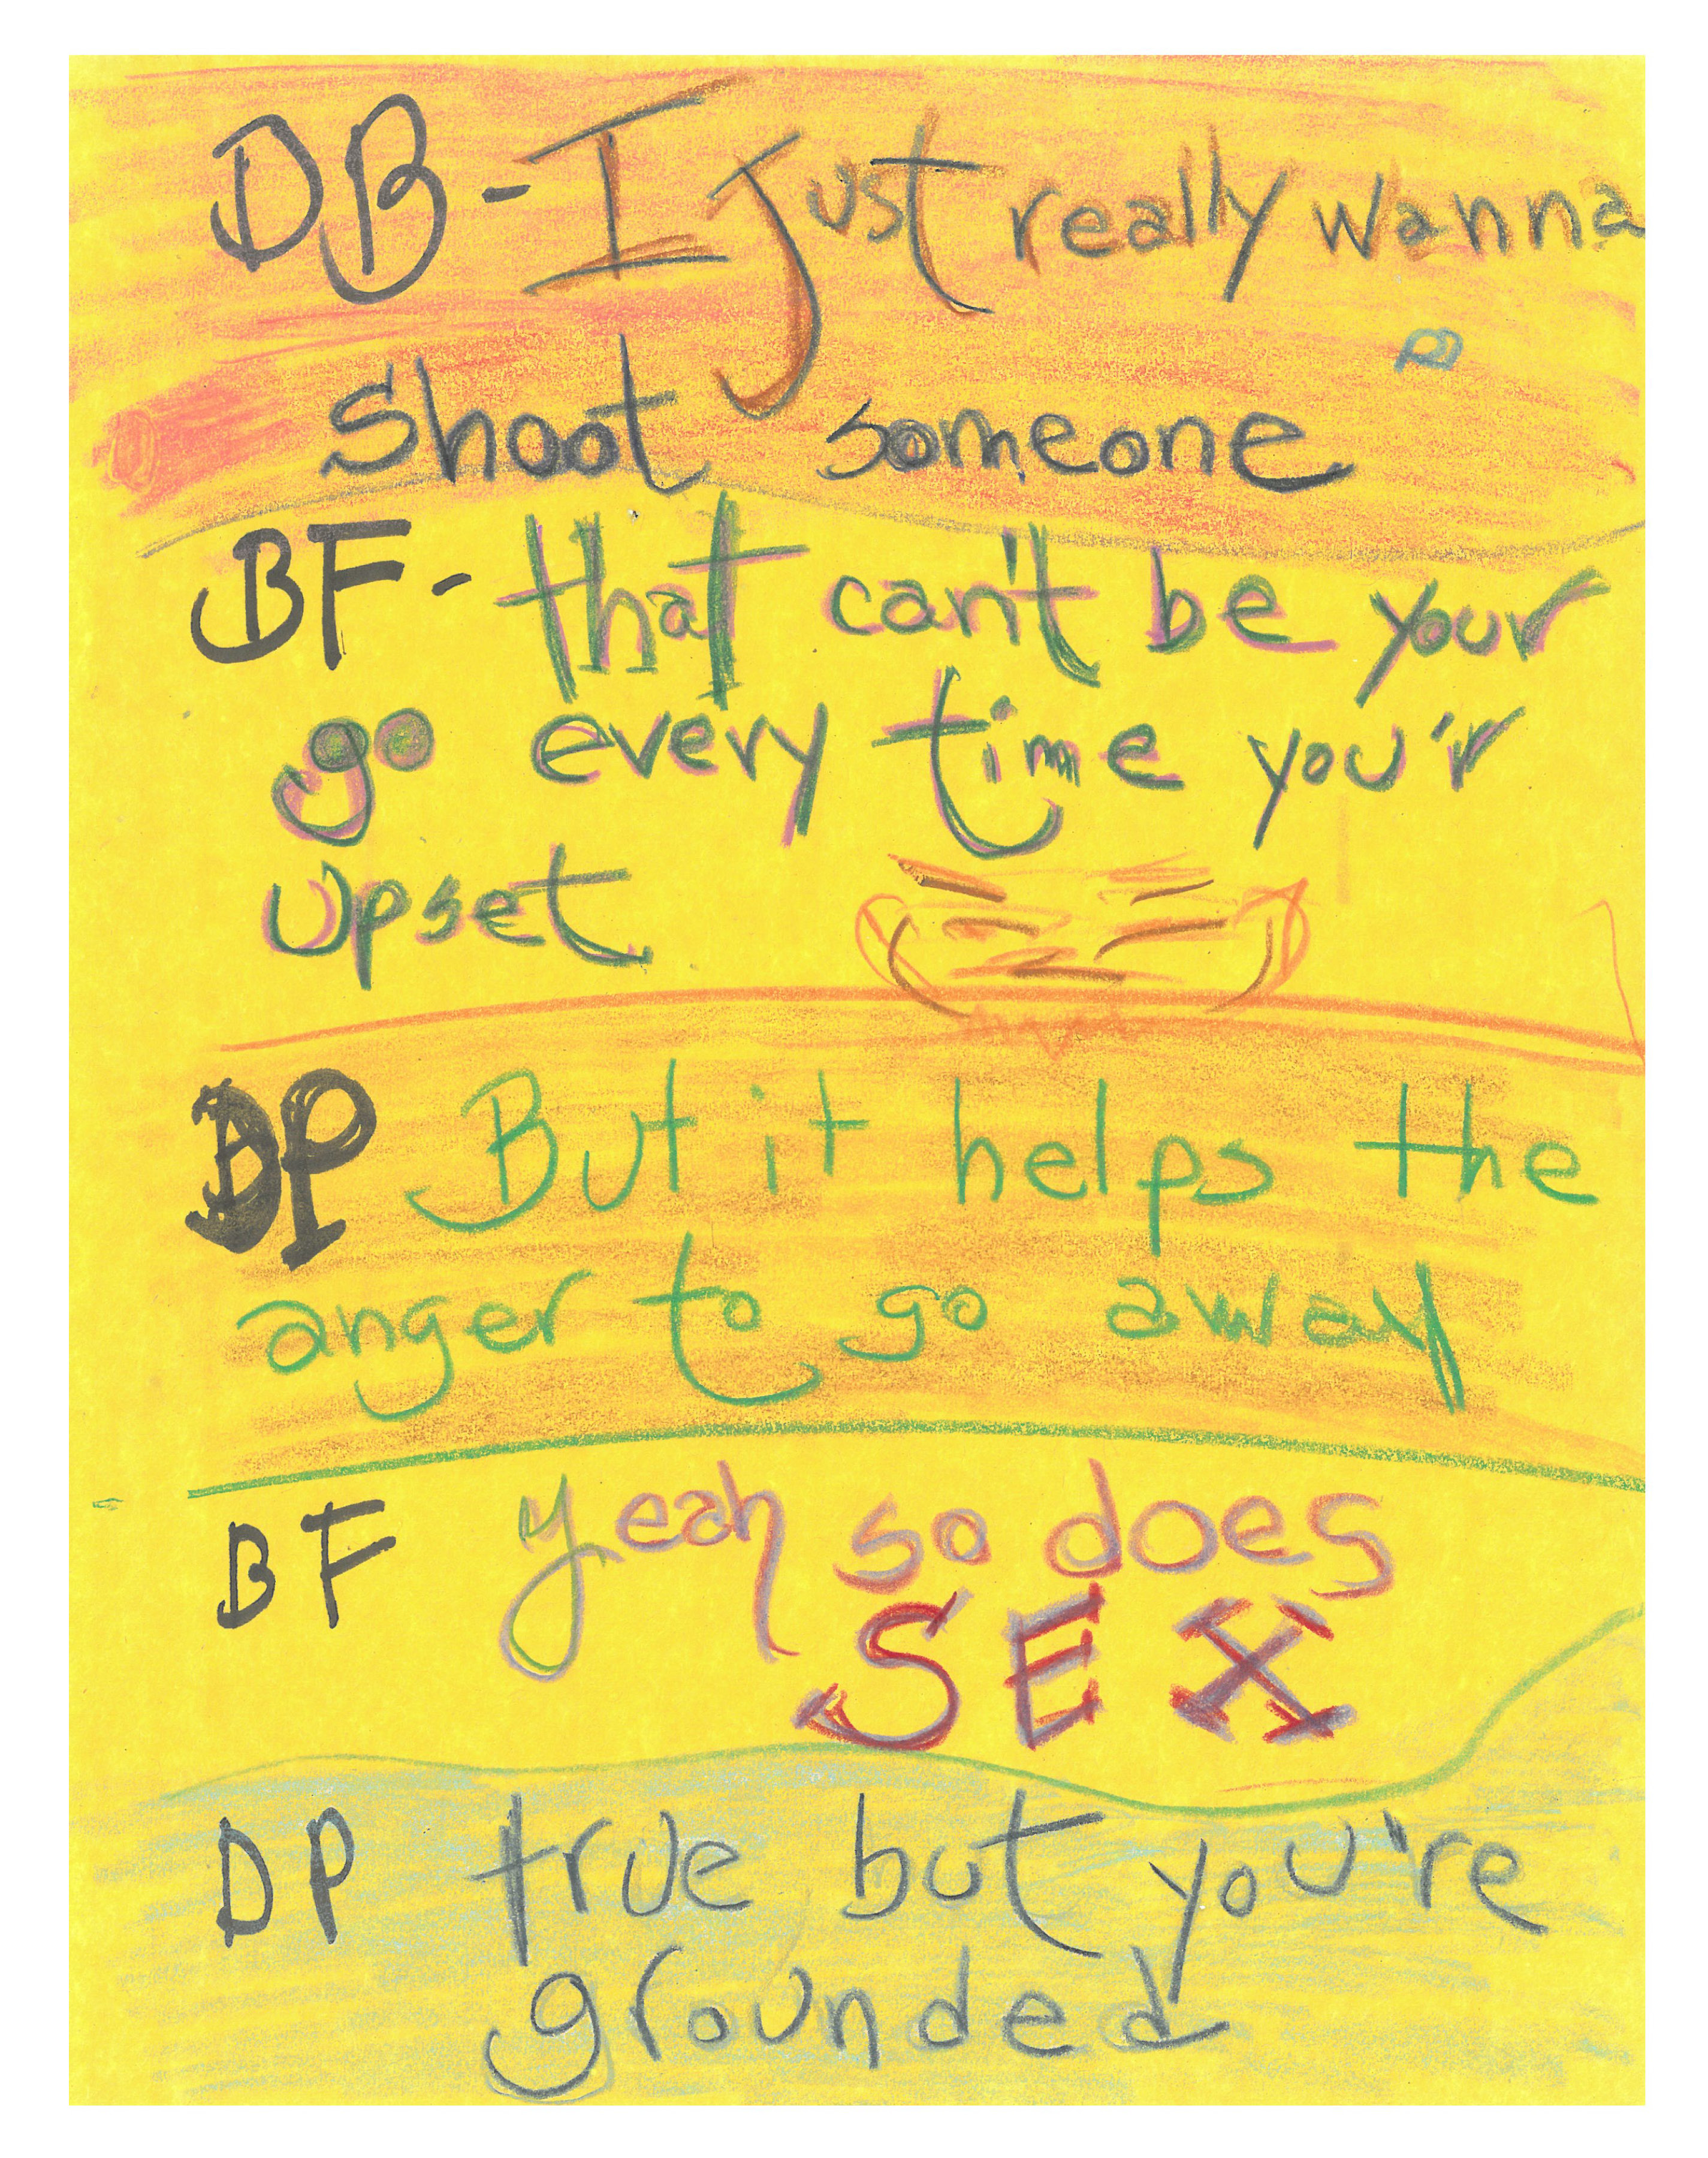 DB - I Just really wanna
Shoot someone
BF - that can't be your
go every time you'r
upset
DP But it helps the
anger to go away
BF yeah so does
SEX
DP true but you're
grounded